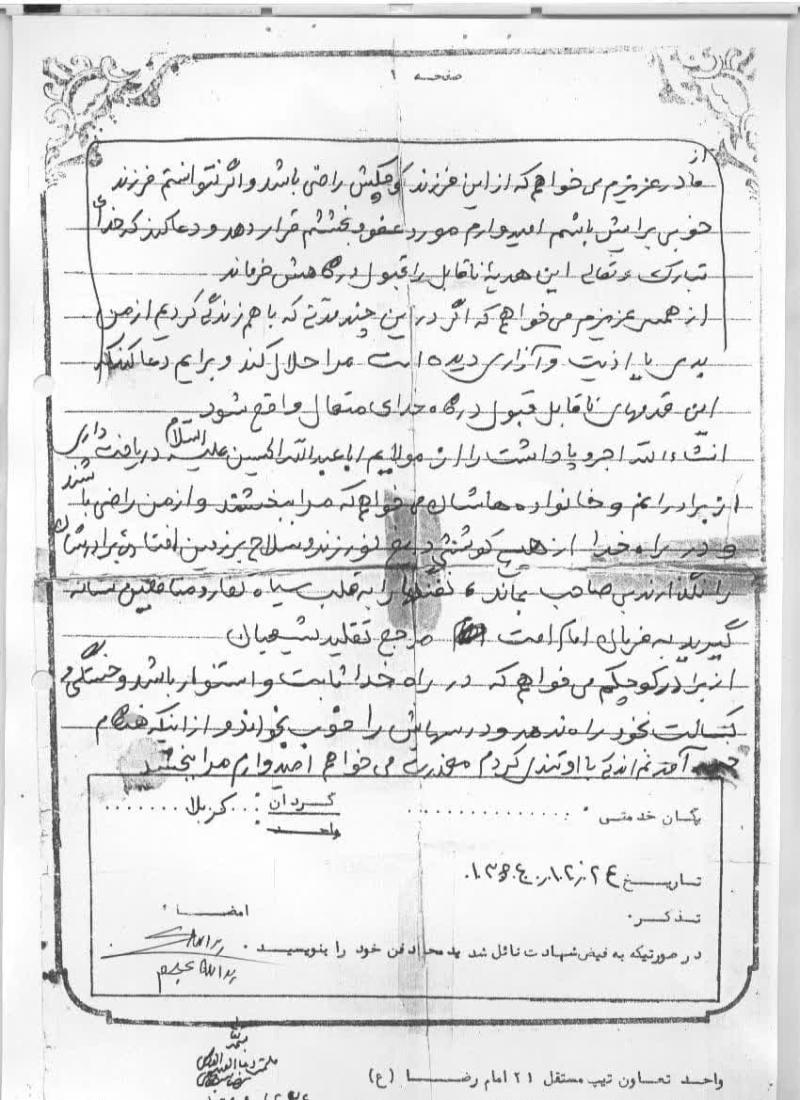 صفحه ۱
از
مادر عزیزم می خواهم که از این فرزند کوچکش راضی باشد و اگر نتوانستم فرزند
خوبی برایش باشم امیدوارم مورد عفو و بخششم قرار دهد و دعا کند که خدای
تبارک و تعالی این هدیهٔ ناقابل را قبول درگاهش فرماند
از همسر عزیزم می خواهم که اگر در این چند مدتی که با هم زندگی کردیم از من
بدی یا اذیت و آزاری دیده است مرا حلال کند و برایم دعا کند که
این قدمهای ناقابل قبول درگاه خدای متعال واقع شود
انشاءالله اجر و پاداشت را از مولایم اباعبدالله الحسین علیه السلام دریافت داری
از برادرانم و خانواده هاشان می خواهم که مرا ببخشند و از من راضی باشند
و در راه خدا از هیچ کوششی دریغ نورزند و سلاح بر زمین افتاده برادرشان
را نگذارند بی صاحب بماند و تفنگها را به قلب سیاه کفار و منافقین نشانه
گیرید به فرمان امام امت مرجع تقلید شیعیان
از برادر کوچکم می خواهم که در راه خدا ثابت و استوار باشد و خستگی و
کسالت بخود راه ندهد و درسهایش را خوب بخواند و از اینکه هنگام
آمدنم اندکی با او تندی کردم معذرت می خواهم امیدوارم مرا ببخشد
یگان خدمتی : گردان : کربلا
واحد
تاریخ ۲۴/۱۲/۱۳۶۴
تذکر
امضاء :
در صورتیکه به فیض شهادت نائل شدید محل دفن خود را بنویسید
یدالله
واحد تعاون تیپ مستقل ۲۱ امام رضا (ع)